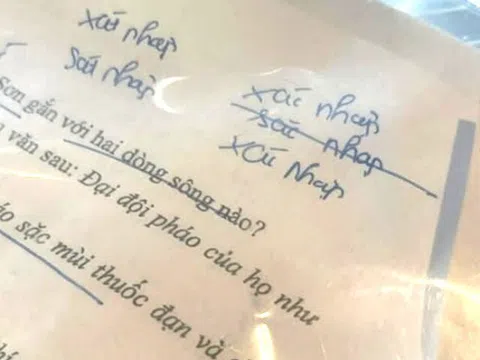 xát nhập
Sát nhập
xác nhập
sác nhập
xcú nhập
Sơn gắn với hai dòng sông nào?
văn sau: Đại đội pháo của họ như
sặc mùi thuốc đạn và